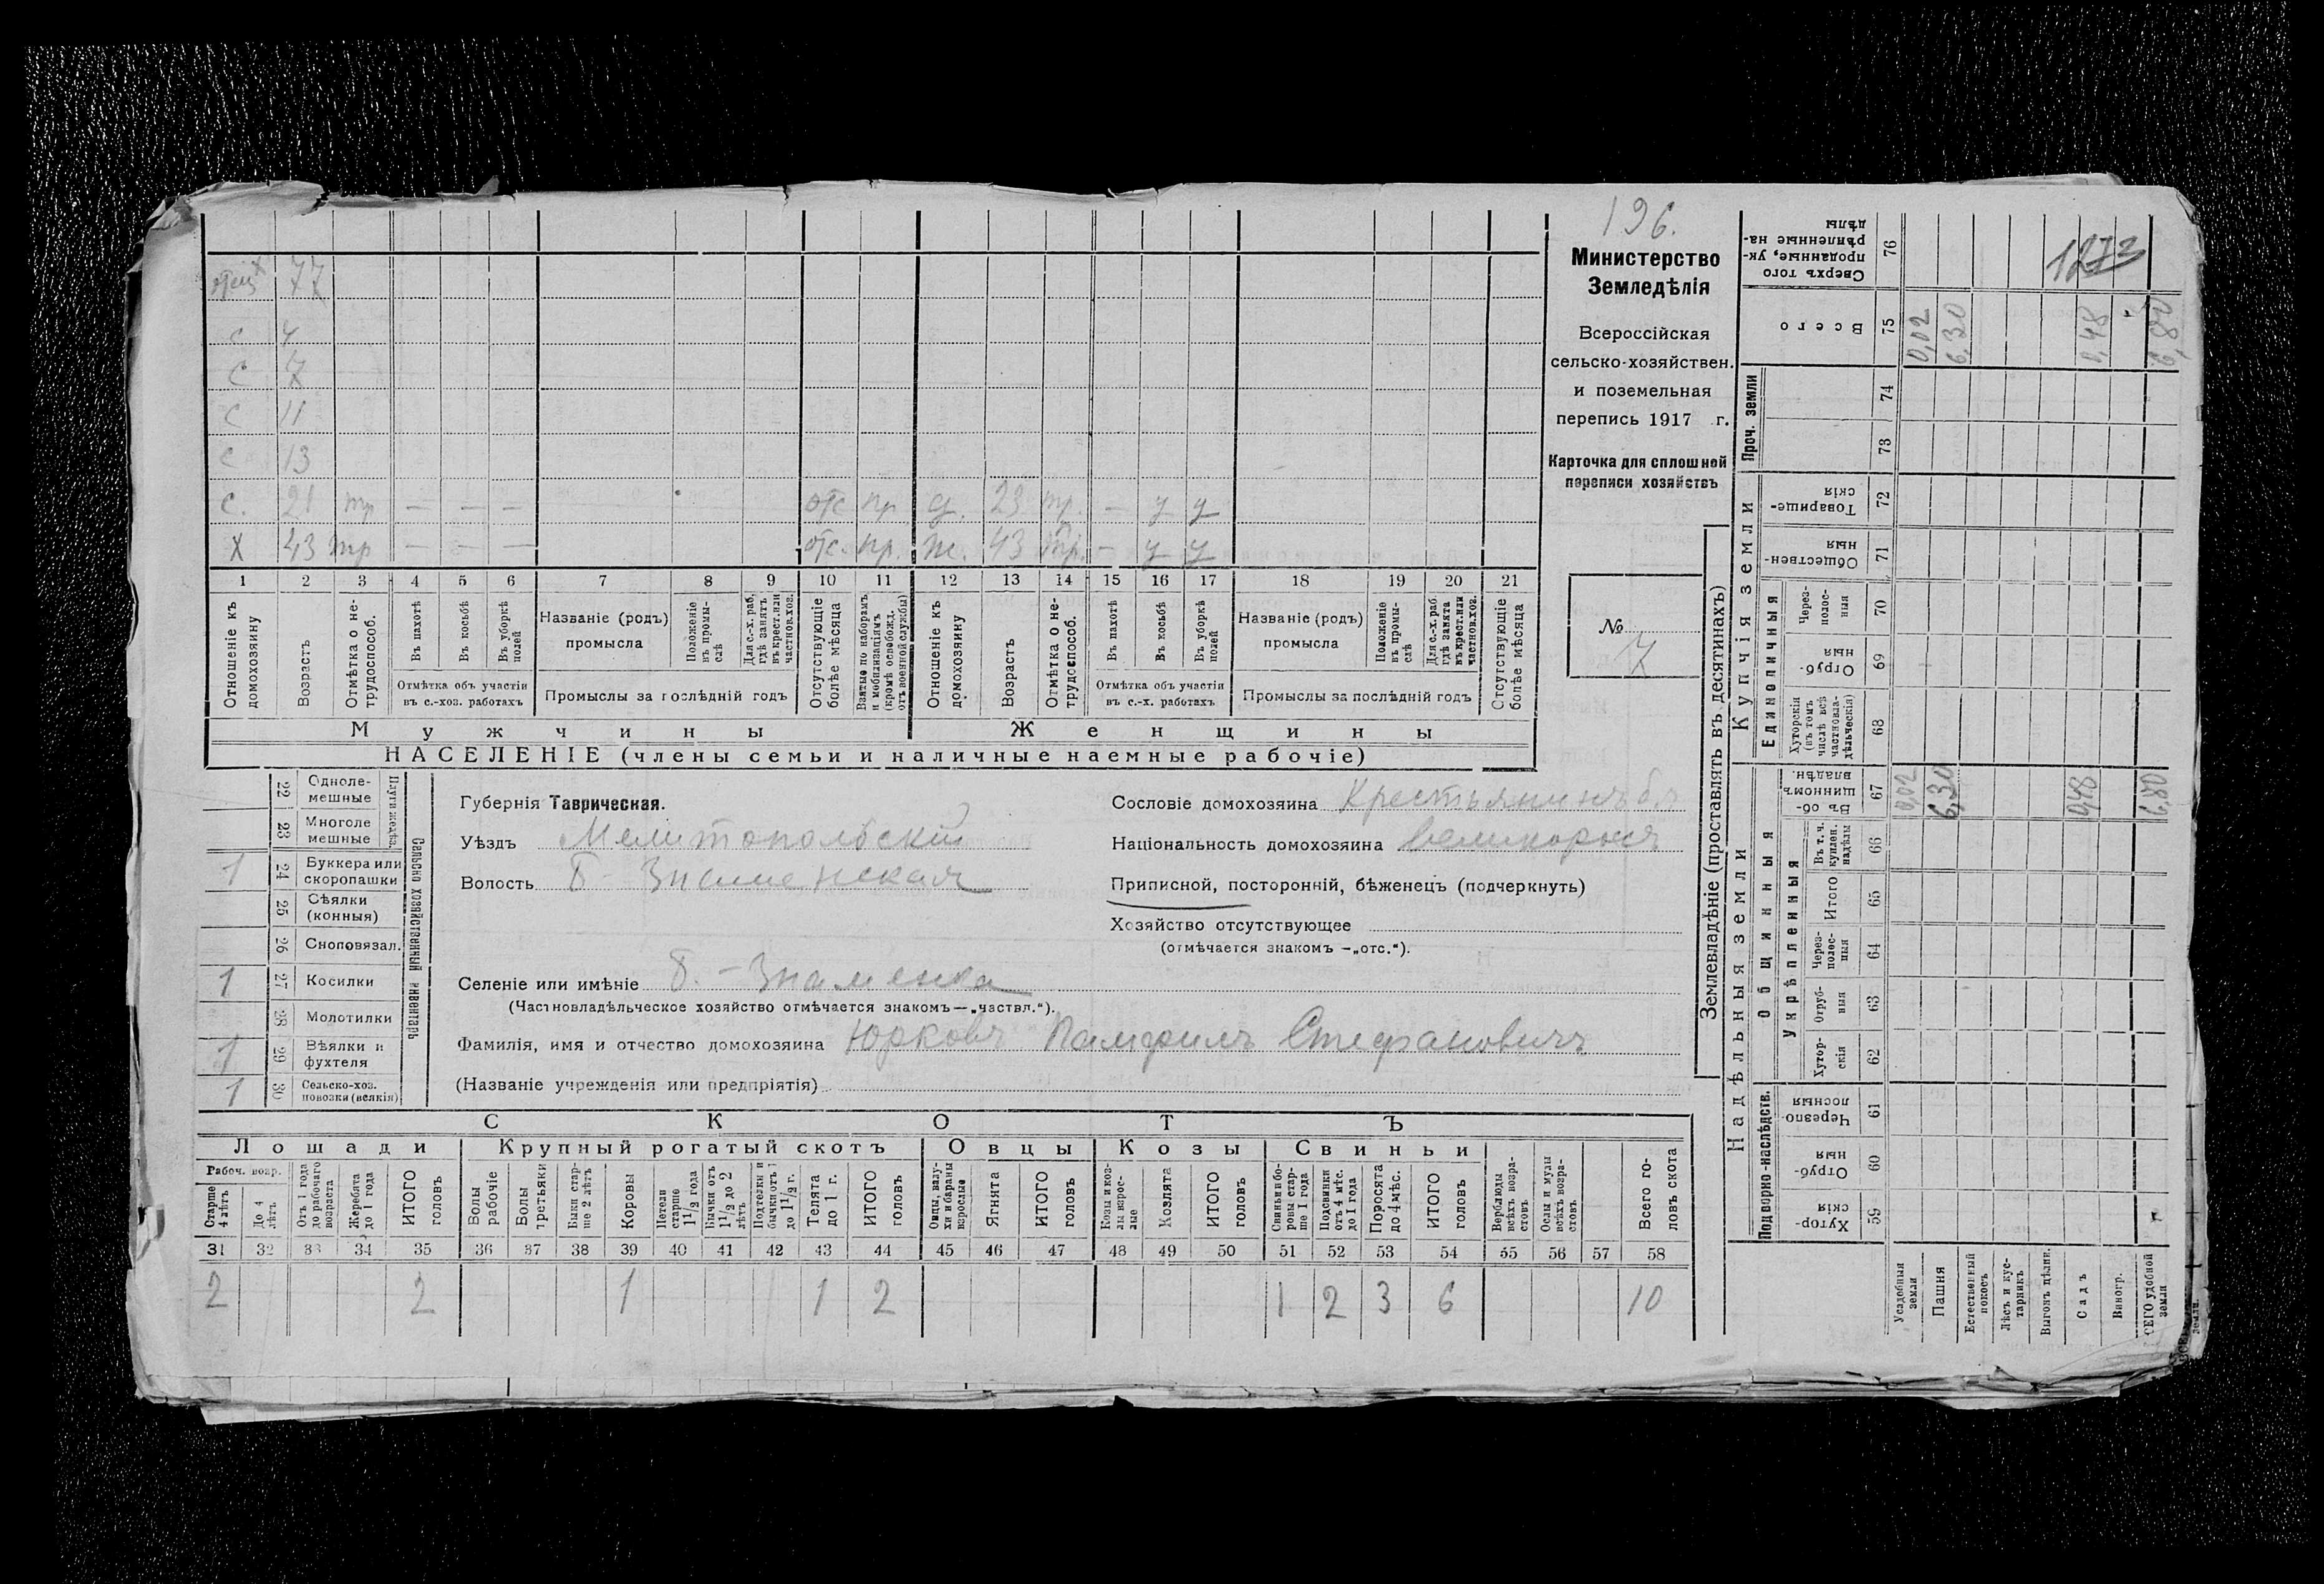 196.
Министерство
Земледѣлія
Всероссійская
сельско-хозяйствен.
и поземельная
перепись 1917 г.
Карточка для сплошной
переписи хозяйствъ
№
7
отец 77
с 4
с 7
с 11
с 13
с. 21 тр — — — отс пр д. 23 тр. — у у
х 43 тр — — — отс. пр. ж. 43 тр. — у у
1 2 3 4 5 6 7 8 9 10 11 12 13 14 15 16 17 18 19 20 21
Отношеніе къ домохозяину
Возрастъ
Отмѣтка о не-трудоспособ.
Въ пахотѣ
Въ косьбѣ
Въ уборкѣ полей
Отмѣтка объ участіи
въ с.-хоз. работахъ
Названіе (родъ)
промысла
Положеніе въ промы-слѣ
Для с.-х. раб. гдѣ занятъ въ крест. или частнов. хоз.
Промыслы за послѣдній годъ
Отсутствующіе болѣе мѣсяца
Взятые по наборамъ и мобилизаціямъ (кромѣ освобожд. отъ военной службы)
Отношеніе къ домохозяину
Возрастъ
Отмѣтка о не-трудоспособ.
Въ пахотѣ
Въ косьбѣ
Въ уборкѣ полей
Отмѣтка объ участіи
въ с.-х. работахъ
Названіе (родъ)
промысла
Положеніе въ промы-слѣ
Для с.-х. раб гдѣ занята въ крест. или частнов. хоз.
Промыслы за послѣдній годъ
Отсутствующіе болѣе мѣсяца
Мужчины Женщины
НАСЕЛЕНІЕ (члены семьи и наличные наемные рабочіе)
Сельско хозяйственный инвентарь
Плуги желѣз.
22 Одноле-мешные
23 Многоле мешные
1 24 Буккера или скоропашки
25 Сѣялки (конныя)
26 Сноповязал.
1 27 Косилки
28 Молотилки
1 29 Вѣялки и фухтеля
1 30 Сельско-хоз. повозки (всякія)
Губернія Таврическая.
Уѣздъ Мелитопольскій
Волость Б-Знаменская
Сословіе домохозяина Крестьянинъ б.
Національность домохозяина великороссъ
Приписной, посторонній, бѣженецъ (подчеркнуть)
Хозяйство отсутствующее
(отмѣчается знакомъ —„отс.“).
Селеніе или имѣніе Б.-Знаменка
(Частновладѣльческое хозяйство отмѣчается знакомъ—„частвл.“).
Фамилія, имя и отчество домохозяина Юрковъ Памфилъ Стефановичъ
(Названіе учрежденія или предпріятія)
СКОТЪ
Лошади Крупный рогатый скотъ Овцы Козы Свиньи
Рабоч. возр.
Старше 4 лѣтъ
До 4 лѣтъ
Отъ 1 года до рабочаго возраста
Жеребята до 1 года
ИТОГО головъ
Волы рабочіе
Волы третьяки
Быки стар-ше 2 лѣтъ
Коровы
Нетели старше 1½ года
Бычки отъ 1½ до 2 лѣтъ
Подтелки и бычки отъ 1 до 1½ г.
Телята до 1 г.
ИТОГО головъ
Овцы, валу-хи и бараны взрослые
Ягнята
ИТОГО головъ
Козы и коз-лы взрос-лые
Козлята
ИТОГО головъ
Свиньи и бо-ровы стар-ше 1 года
Подсвинки отъ 4 мѣс. до 1 года
Поросята до 4 мѣс.
ИТОГО головъ
Верблюды всѣхъ возра-стовъ
Ослы и мулы всѣхъ возра-стовъ
Всего го-ловъ скота
31 32 33 34 35 36 37 38 39 40 41 42 43 44 45 46 47 48 49 50 51 52 53 54 55 56 57 58
2 2 1 1 2 1 2 3 6 10
Землевладѣніе (проставлять въ десятинахъ)
Надѣльныя земли
Купчія земли
Проч. земли
Подворно-наслѣдств.
Общинныя
Укрѣпленныя
Единоличныя
Сверхъ того проданные, ук-рѣпленные на-дѣлы 76
1273
Всего 75 0,02 6,30 0,48 6,80
74
73
Товарище-скія 72
Обществен-ныя 71
Через-полос-ныя 70
Отруб-ныя 69
Хуторскія (въ томъ числѣ всѣ частновла-дѣльческія) 68
Въ об-щинномъ владѣн. 67 0,02 6,30 0,48 6,80
Въ т. ч. куплен. надѣлы 66
Итого 65
Через-полос-ныя 64
Отруб-ныя 63
Хутор-скія 62
Черезпо-лосныя 61
Отруб-ныя 60
Хутор-скія 59
Усадебныя земли
Пашня
Естественный покосъ
Лѣсъ и кус-тарникъ
Выгонъ цѣлин.
Садъ
Виногр.
СЕГО удобной земли